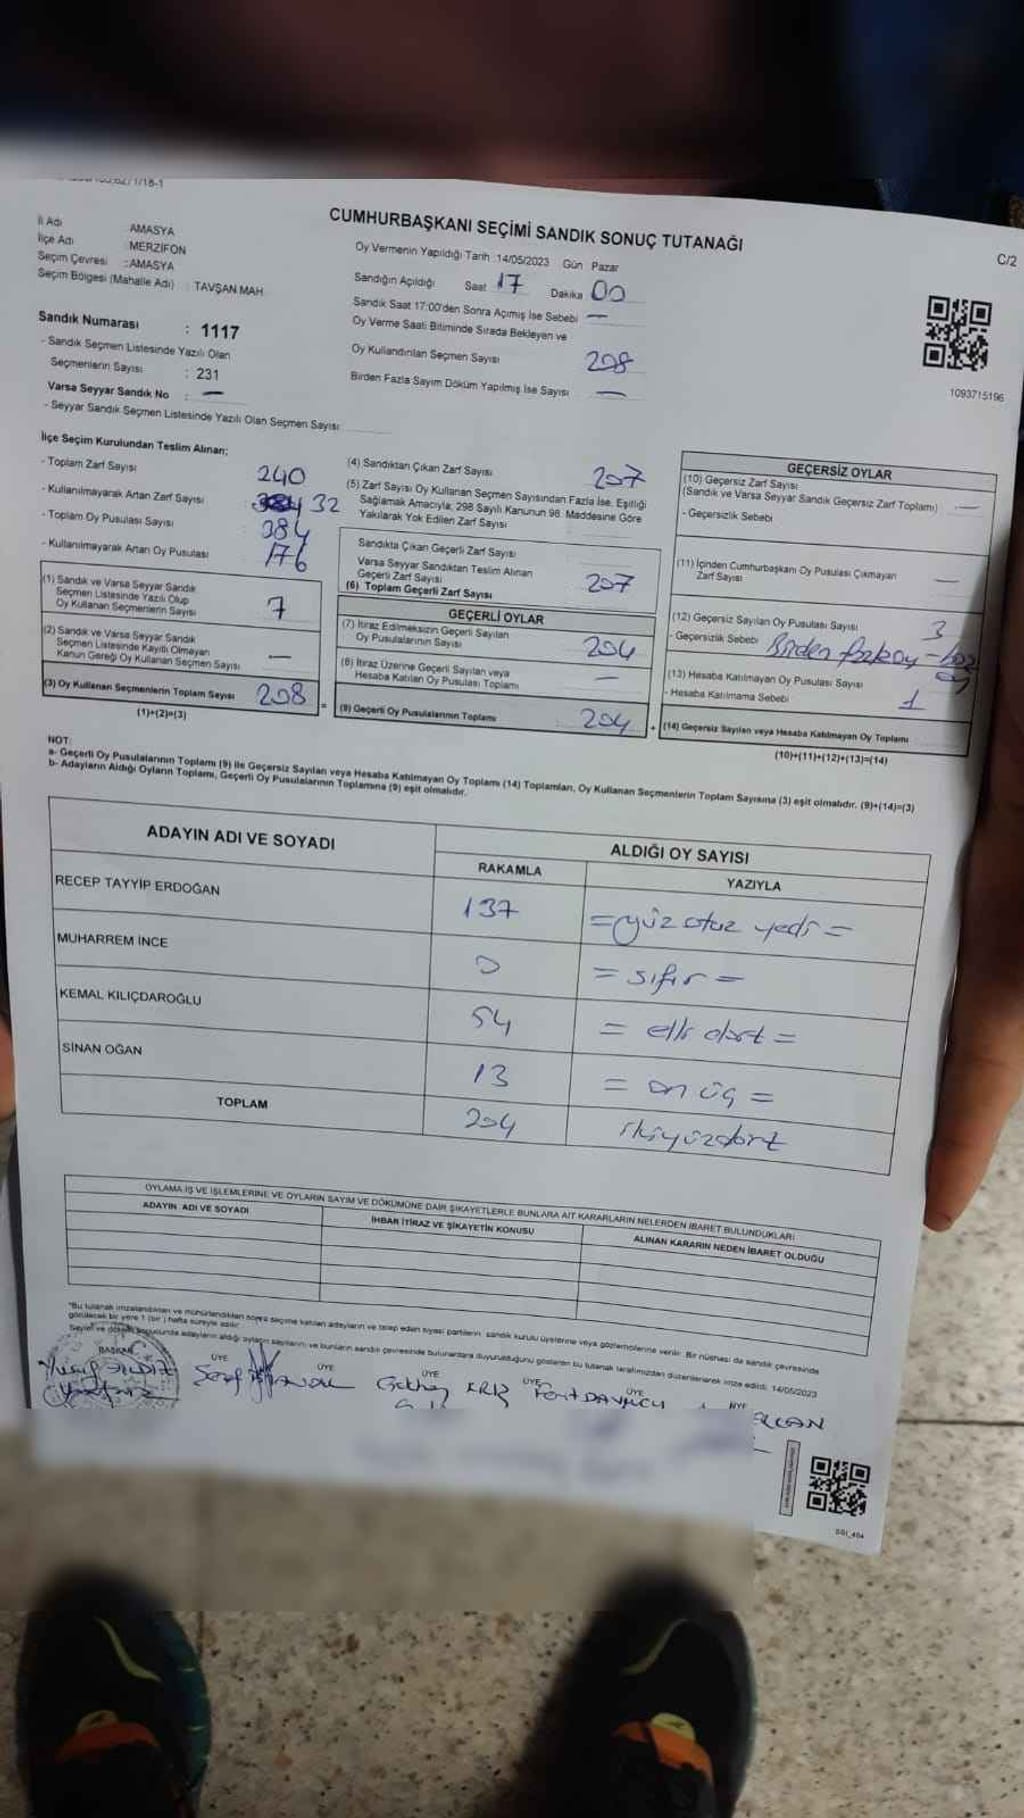 İl Adı AMASYA
İlçe Adı MERZİFON
Seçim Çevresi :AMASYA
Seçim Bölgesi (Mahalle Adı) : TAVŞAN MAH
CUMHURBAŞKANI SEÇİMİ SANDIK SONUÇ TUTANAĞI
C/2
Oy Vermenin Yapıldığı Tarih :14/05/2023 Gün Pazar
Sandığın Açıldığı Saat 17 Dakika 00
Sandık Saat 17:00'den Sonra Açımış İse Sebebi —
Oy Verme Saati Bitiminde Sırada Bekleyen ve
Oy Kullandırılan Seçmen Sayısı 208
Birden Fazla Sayım Döküm Yapılmış İse Sayısı —
1093715196
Sandık Numarası : 1117
- Sandık Seçmen Listesinde Yazılı Olan
Seçmenlerin Sayısı : 231
Varsa Seyyar Sandık No : —
- Seyyar Sandık Seçmen Listesinde Yazılı Olan Seçmen Sayısı
İlçe Seçim Kurulundan Teslim Alınan;
- Toplam Zarf Sayısı 240
- Kullanılmayarak Artan Zarf Sayısı 32
- Toplam Oy Pusulası Sayısı 384
- Kullanılmayarak Artan Oy Pusulası 176
(1) Sandık ve Varsa Seyyar Sandık
Seçmen Listesinde Yazılı Olup
Oy Kullanan Seçmenlerin Sayısı 7
(2) Sandık ve Varsa Seyyar Sandık
Seçmen Listesinde Kayıtlı Olmayan
Kanun Gereği Oy Kullanan Seçmen Sayısı —
(3) Oy Kullanan Seçmenlerin Toplam Sayısı 208
(1)+(2)=(3)
(4) Sandıktan Çıkan Zarf Sayısı 207
(5) Zarf Sayısı Oy Kullanan Seçmen Sayısından Fazla İse, Eşitliği
Sağlamak Amacıyla; 298 Sayılı Kanunun 98. Maddesine Göre
Yakılarak Yok Edilen Zarf Sayısı
Sandıkta Çıkan Geçerli Zarf Sayısı
Varsa Seyyar Sandıktan Teslim Alınan
Geçerli Zarf Sayısı
(6) Toplam Geçerli Zarf Sayısı 207
GEÇERLİ OYLAR
(7) İtiraz Edilmeksizin Geçerli Sayılan
Oy Pusulalarının Sayısı 204
(8) İtiraz Üzerine Geçerli Sayılan veya
Hesaba Katılan Oy Pusulası Toplamı —
(9) Geçerli Oy Pusulalarının Toplamı 204
GEÇERSİZ OYLAR
(10) Geçersiz Zarf Sayısı
(Sandık ve Varsa Seyyar Sandık Geçersiz Zarf Toplamı) —
- Geçersizlik Sebebi
(11) İçinden Cumhurbaşkanı Oy Pusulası Çıkmayan
Zarf Sayısı —
(12) Geçersiz Sayılan Oy Pusulası Sayısı 3
- Geçersizlik Sebebi Birden
(13) Hesaba Katılmayan Oy Pusulası Sayısı 1
- Hesaba Katılmama Sebebi
(14) Geçersiz Sayılan veya Hesaba Katılmayan Oy Toplamı
(10)+(11)+(12)+(13)=(14)
NOT:
a- Geçerli Oy Pusulalarının Toplamı (9) ile Geçersiz Sayılan veya Hesaba Katılmayan Oy Toplamı (14) Toplamları, Oy Kullanan Seçmenlerin Toplam Sayısına (3) eşit olmalıdır. (9)+(14)=(3)
b- Adayların Aldığı Oyların Toplamı, Geçerli Oy Pusulalarının Toplamına (9) eşit olmalıdır.
ADAYIN ADI VE SOYADI ALDIĞI OY SAYISI
RAKAMLA YAZIYLA
RECEP TAYYİP ERDOĞAN 137 =yüz otuz yedi=
MUHARREM İNCE 0 =sıfır=
KEMAL KILIÇDAROĞLU 54 =elli dört=
SİNAN OĞAN 13 =on üç=
TOPLAM 204 ikiyüzdört
OYLAMA İŞ VE İŞLEMLERİNE VE OYLARIN SAYIM VE DÖKÜMÜNE DAİR ŞİKAYETLERLE BUNLARA AİT KARARLARIN NELERDEN İBARET BULUNDUKLARI
ADAYIN ADI VE SOYADI İHBAR İTİRAZ VE ŞİKAYETİN KONUSU ALINAN KARARIN NEDEN İBARET OLDUĞU
BAŞKAN ÜYE ÜYE ÜYE ÜYE ÜYE